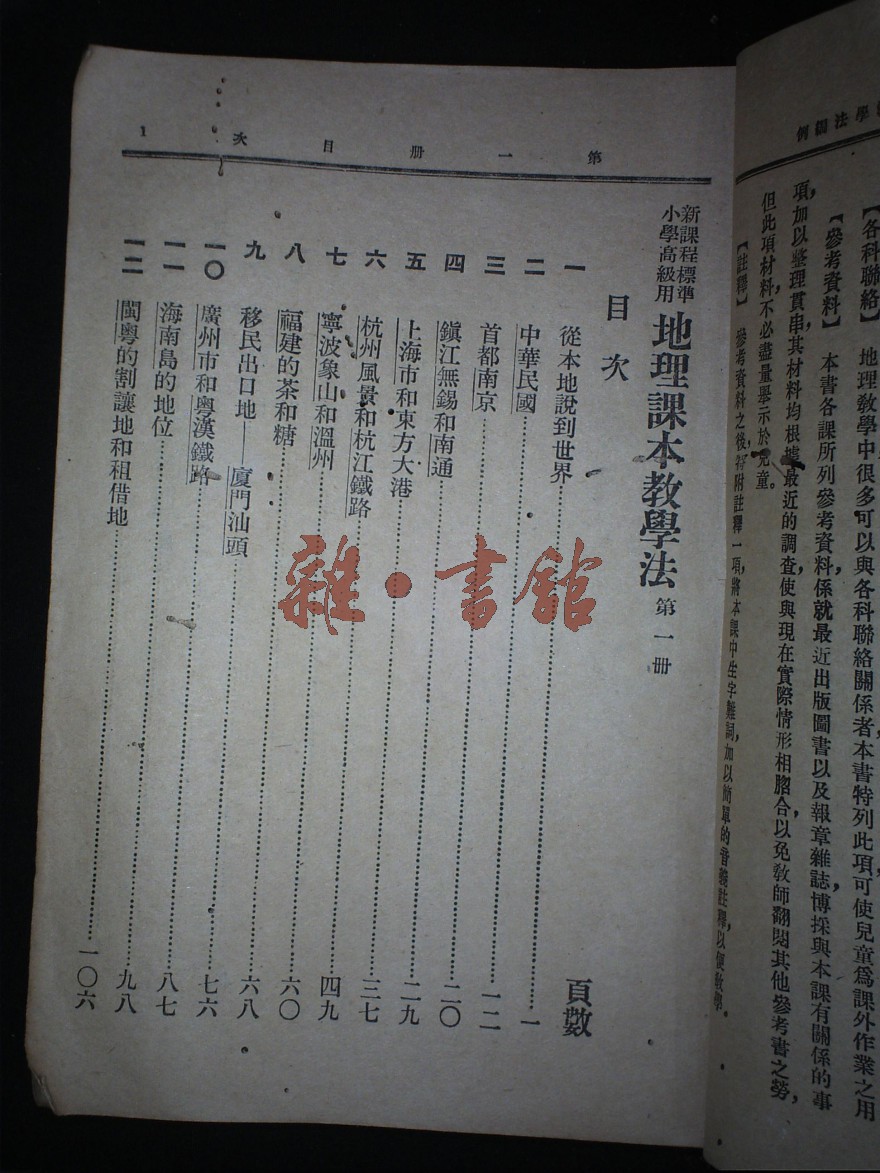 學法編例
【各科聯絡】 地理教學中很多可以與各科聯絡關係者，本書特列此項，可使兒童爲課外作業之用
【參考資料】 本書各課所列參考資料係就最近出版圖書以及報章雜誌，博採與本課有關係的事
項，加以整理貫串，其材料均根據最近的調查，使與現在實際情形相脗合，以免教師翻閱其他參考書之勞，
但此項材料，不必盡量舉示於兒童。
【註釋】 參考資料之後，另附註釋一項，將本課中生字難詞，加以簡單的音義註釋，以便教學。
第一册 目次 1
新課程標準
小學高級用
地理課本教學法 第一册
目次 頁數
一 從本地說到世界……一
二 中華民國……一二
三 首都南京……二〇
四 鎭江無錫和南通……二九
五 上海市和東方大港……三七
六 杭州風景和杭江鐵路……四九
七 寧波象山和溫州……六〇
八 福建的茶和糖……六八
九 移民出口地——廈門汕頭……七六
一〇 廣州市和粵漢鐵路……八七
一一 海南島的地位……九八
一二 閩粵的割讓地和租借地……一〇六
雜·書館